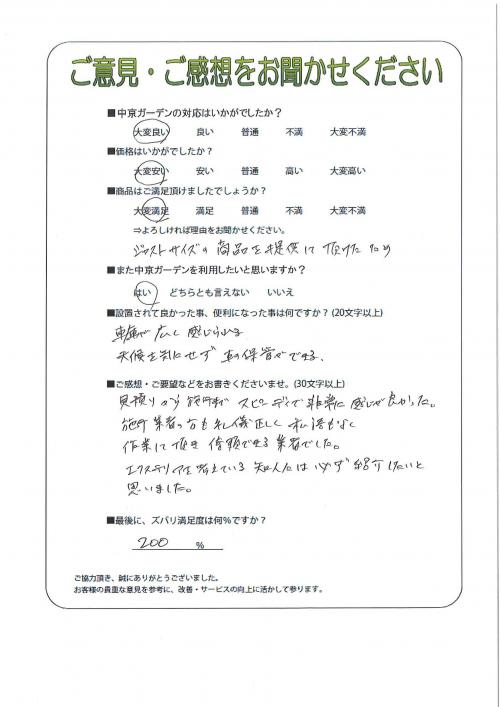 ご意見・ご感想をお聞かせください
■中京ガーデンの対応はいかがでしたか？
大変良い 良い 普通 不満 大変不満
■価格はいかがでしたか？
大変安い 安い 普通 高い 大変高い
■商品はご満足頂けましたでしょうか？
大変満足 満足 普通 不満 大変不満
⇒よろしければ理由をお聞かせください。
ジャストサイズの商品を提供して頂けたため
■また中京ガーデンを利用したいと思いますか？
はい どちらとも言えない いいえ
■設置されて良かった事、便利になった事は何ですか？(20文字以上)
車庫が広く感じられる
天候を気にせず車の保管ができる、
■ご感想・ご要望などをお書きくださいませ。(30文字以上)
見積りから施工まで スピーディで非常に感じが良かった。
施工業者の方も礼儀正しく 私語もなく
作業して頂き 信頼できる業者でした。
エクステリアを考えている知人には必ず紹介したいと
思いました。
■最後に、ズバリ満足度は何％ですか？
200 ％
ご協力頂き、誠にありがとうございました。
お客様の貴重な意見を参考に、改善・サービスの向上に活かして参ります。